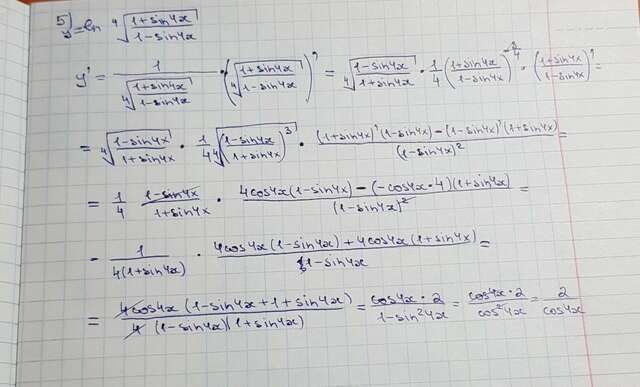 5) y=ln ⁴√((1+sin4x)/(1-sin4x))
y' = 1/(⁴√((1+sin4x)/(1-sin4x))) · (⁴√((1+sin4x)/(1-sin4x)))' = ⁴√((1-sin4x)/(1+sin4x)) · 1/4 ((1+sin4x)/(1-sin4x))^(-3/4) · ((1+sin4x)/(1-sin4x))' =
= ⁴√((1-sin4x)/(1+sin4x)) · 1/4 ⁴√(((1-sin4x)/(1+sin4x))³) · ((1+sin4x)'(1-sin4x)-(1-sin4x)'(1+sin4x))/(1-sin4x)² =
= 1/4 (1-sin4x)/(1+sin4x) · (4cos4x(1-sin4x)-(-cos4x·4)(1+sin4x))/(1-sin4x)² =
= 1/(4(1+sin4x)) · (4cos4x(1-sin4x)+4cos4x(1+sin4x))/(1-sin4x) =
= (4cos4x(1-sin4x+1+sin4x))/(4(1-sin4x)(1+sin4x)) = (cos4x·2)/(1-sin²4x) = (cos4x·2)/(cos²4x) = 2/(cos4x)